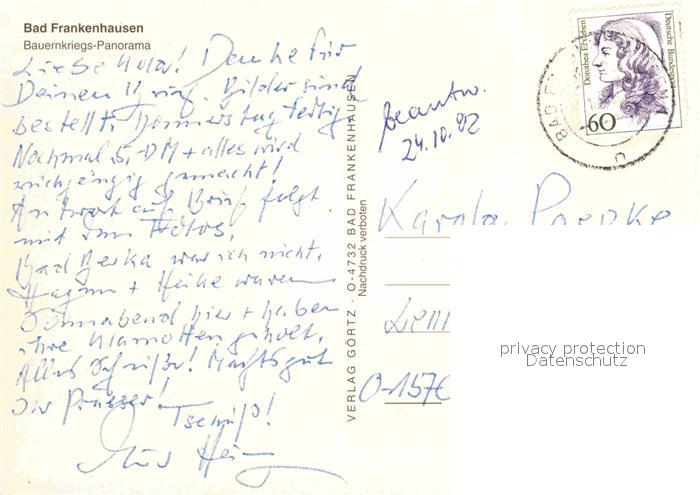 Bad Frankenhausen
Bauernkriegs-Panorama
Liebe Danke für
Deinen Brief. Bilder sind
bestellt, Donnerstag fertig
Nochmal 5,-DM + alles wird
gemacht!
Antwort auf Brief folgt
mit den Fotos.
Bad Berka war ich nicht.
+ Heike waren
Sonnabend hier + haben
ihre Klamotten geholt.
Alles Machts gut
Ihr Prasser!
Tschüß!
beantw.
24.10.92
VERLAG GÖRTZ · O-4732 BAD FRANKENHAUSEN
Nachdruck verboten
Dorothea Erxleben
Deutsche Bundespost
60
BAD
Karola
O-1570
privacy protection
Datenschutz